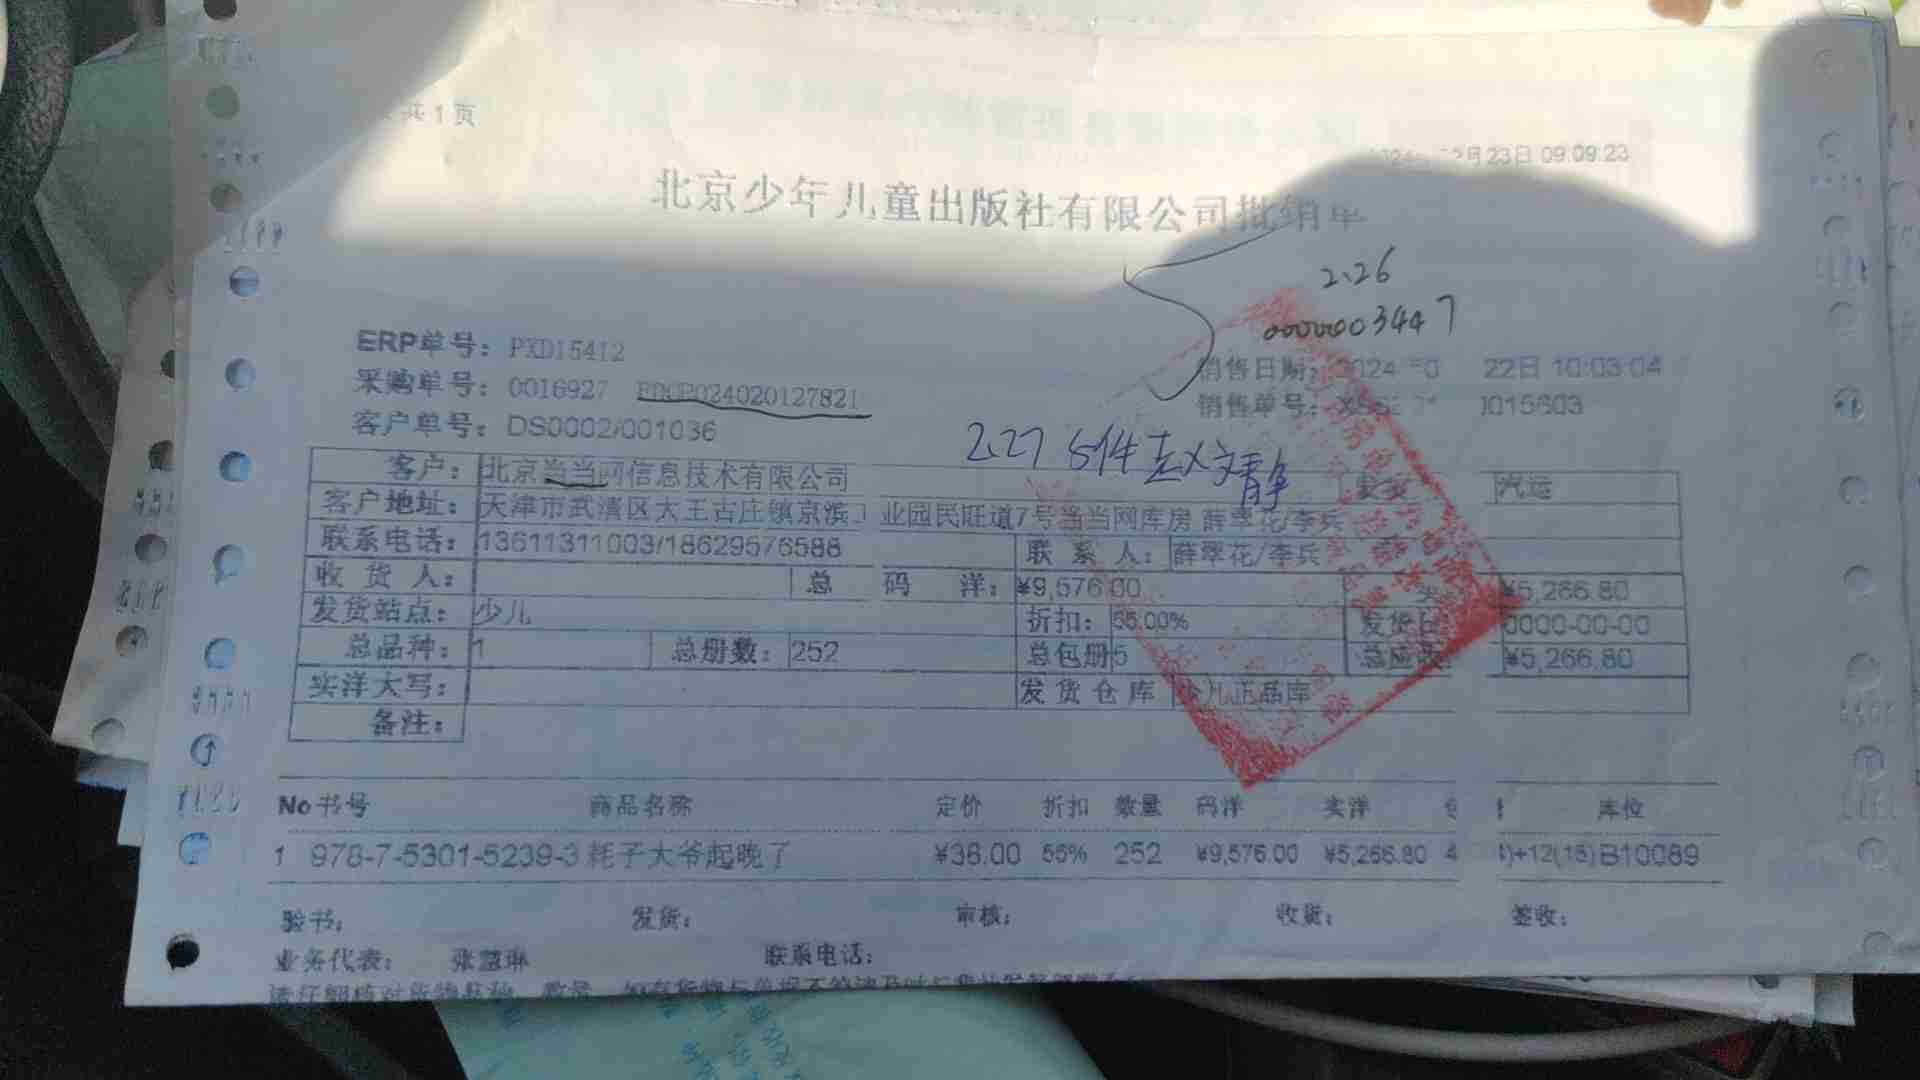 共 1 页
23日 09:09:23
北京少年儿童出版社有限公司批销单
2.26
0000003447
ERP单号：PXD15412
采购单号：0016927
销售日期：2024 22日 10:03:04
客户单号：DS0002/001036
销售单号：
2.27 5件
客户：北京当当网信息技术有限公司 汽运
客户地址：天津市武清区大王古庄镇京滨 业园民旺道7号当当网库房 薛翠花/李兵
联系电话：13611311003/18629576588 联系人：薛翠花/李兵
收货人： 总码洋：¥9,576.00 ¥5,266.80
发货站点：少儿 折扣：55.00% 发货日 0000-00-00
总品种：1 总册数：252 总包册 5 ¥5,266.80
实洋大写： 发货仓库 少儿正品库
备注：
No 书号 商品名称 定价 折扣 数量 码洋 实洋 库位
1 978-7-5301-5239-3 耗子大爷起晚了 ¥38.00 55% 252 ¥9,576.00 ¥5,266.80 4 )+12(18) B10089
验书： 发货： 审核： 收货： 签收：
业务代表： 张慧琳 联系电话：